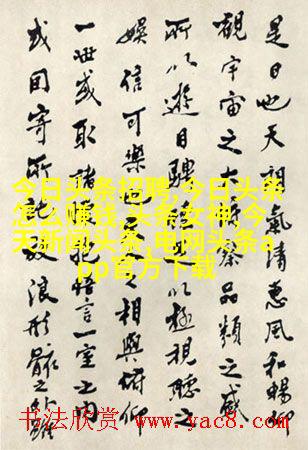 是日也天朗氣清惠風和暢仰
觀宇宙之大察品類之盛
所以遊目騁以極視聽之
娛信可樂也之相與俯仰
一世或取諸抱悟言一室之内
或因寄所放浪形骸之外雖
今日头条招聘,今日头条
怎么赚钱,头条女神,今
天新闻头条,电网头条a
pp官方下载
书法欣赏 www.yac8.com